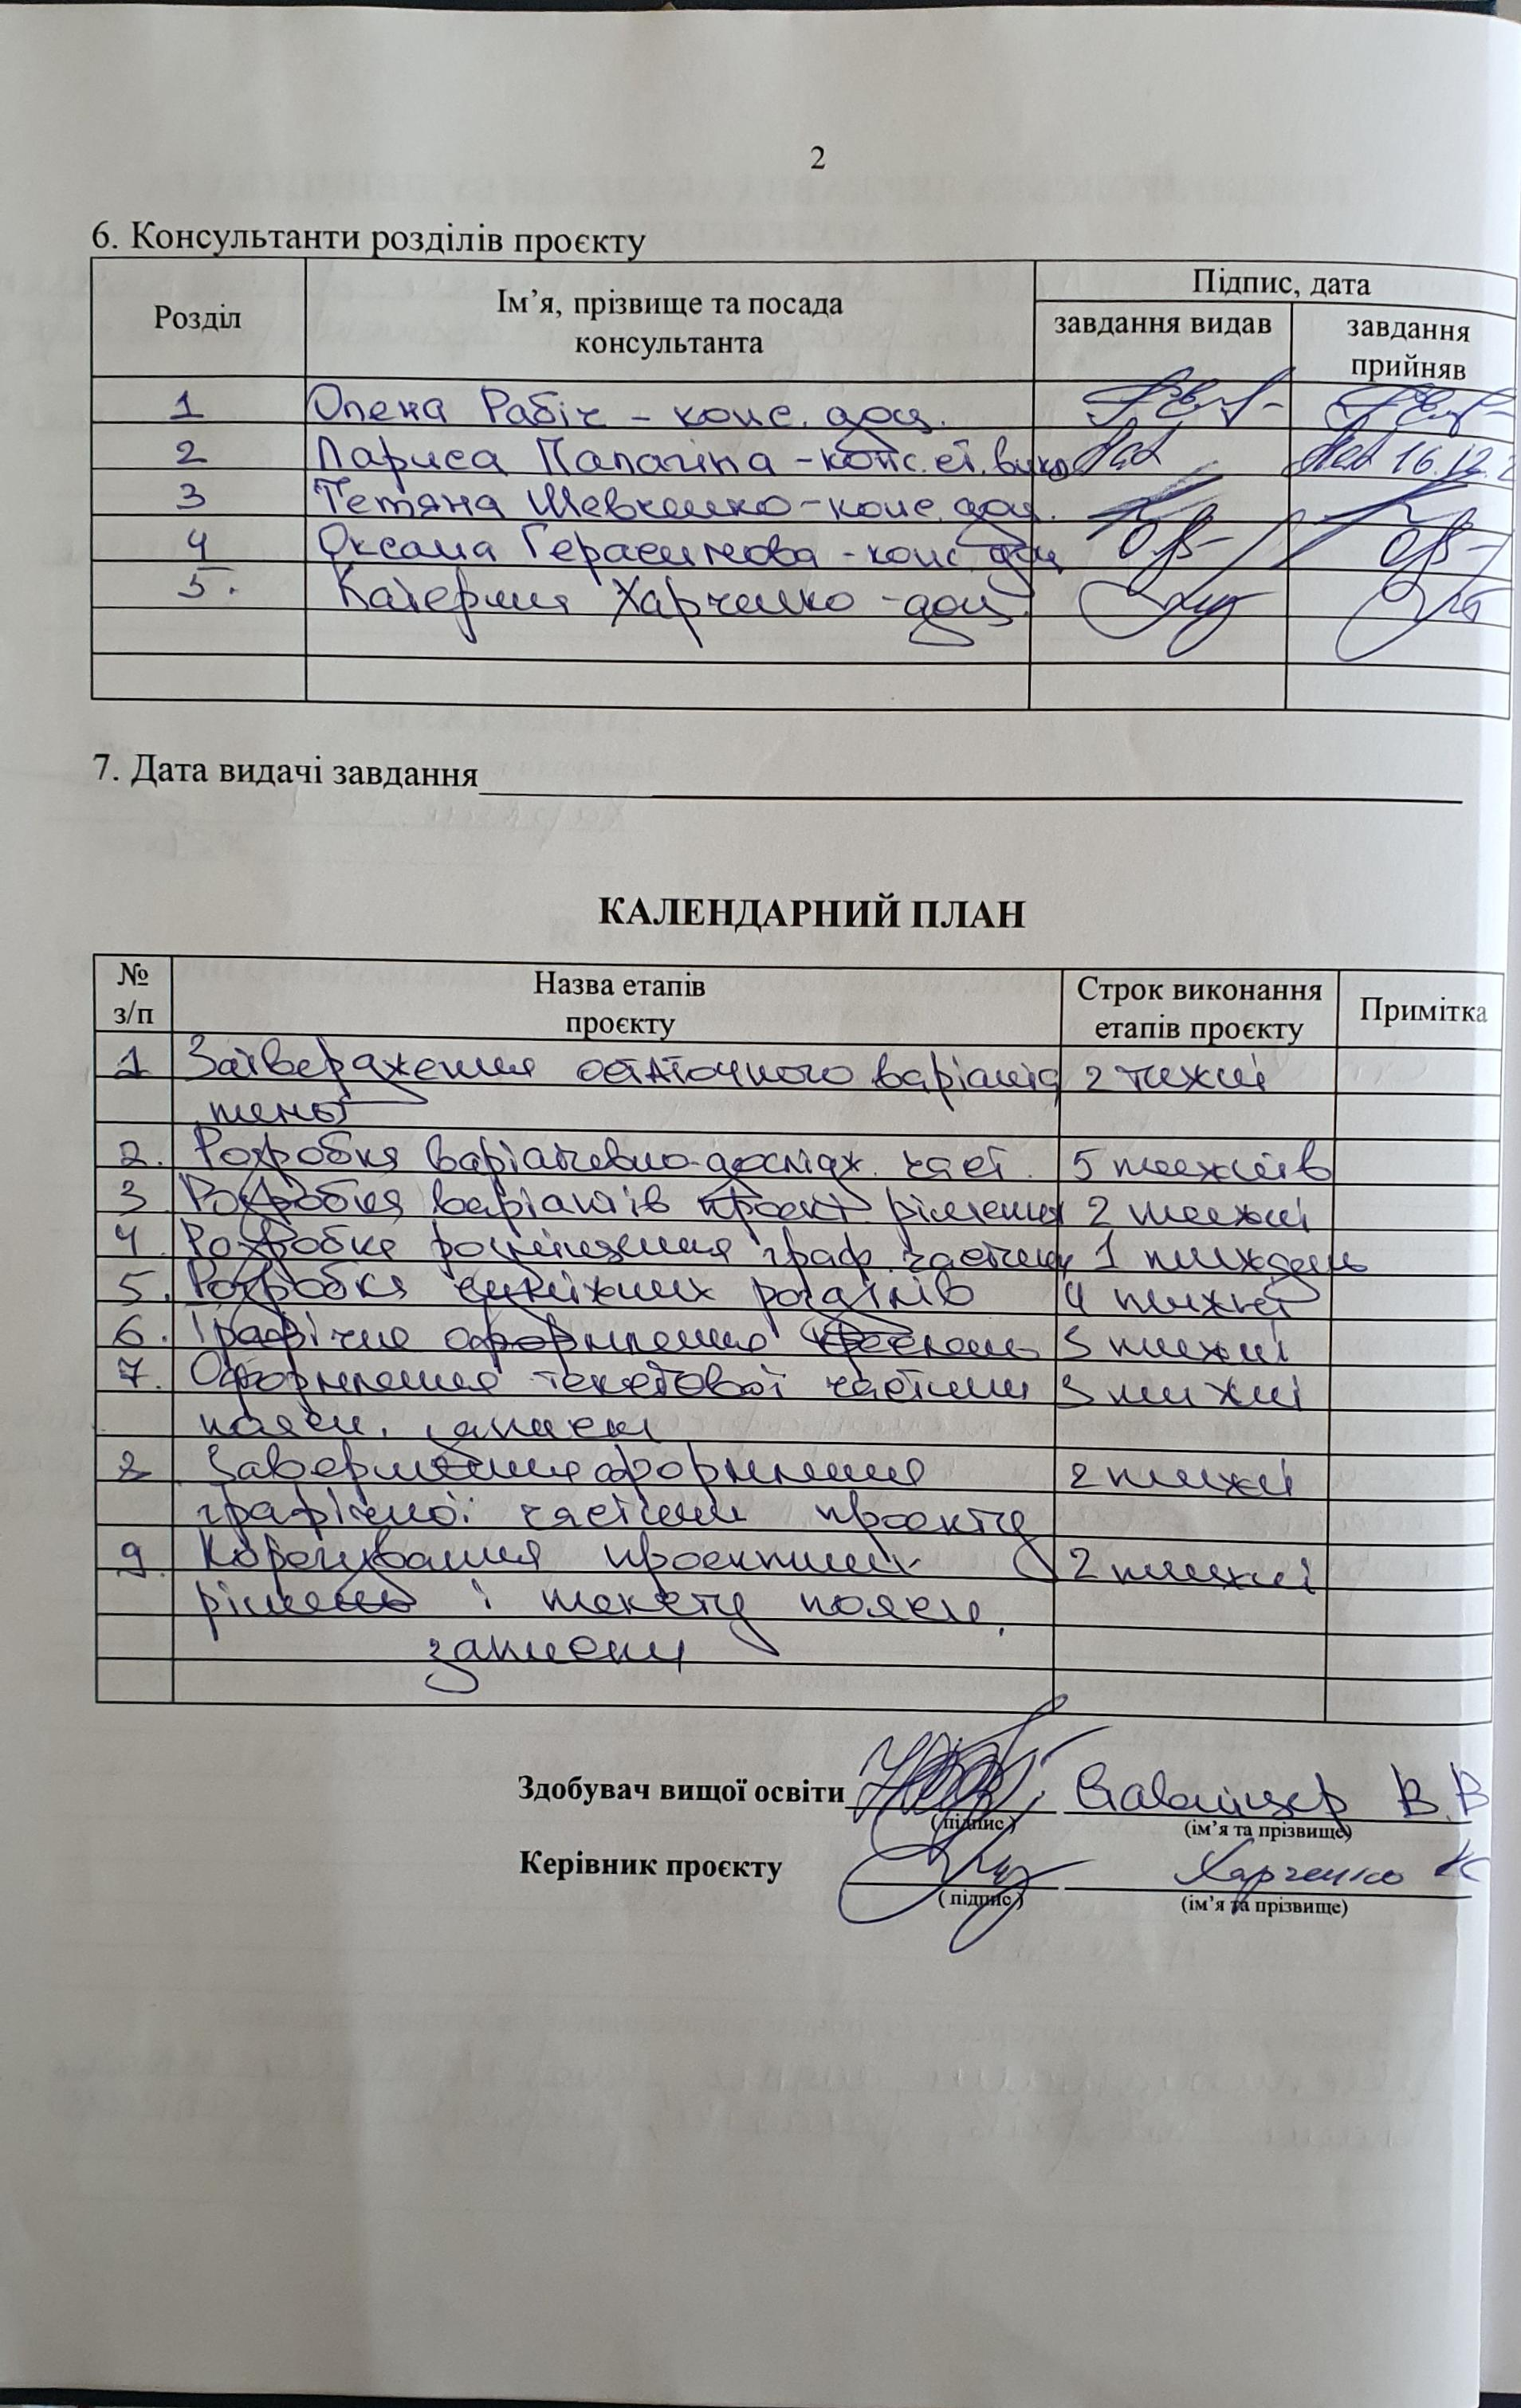 2
6. Консультанти розділів проєкту
Розділ Ім’я, прізвище та посада консультанта Підпис, дата
завдання видав завдання прийняв
1 Олена Рабіч – конс. доц.
2 Лариса – конс. ст. викл 16.12.2
3 Тетяна Шевченко – конс. доц.
4 Оксана Герасимова - конс. доц
5. Катерина Харченко - доц.
7. Дата видачі завдання
КАЛЕНДАРНИЙ ПЛАН
№ з/п Назва етапів проєкту Строк виконання етапів проєкту Примітка
1 Затвердження остаточного варіанта 2 тижні
теми
2. Розробка варіативно-дослідж. част. 5 тижнів
3 Розробка варіантів проєкт. рішення 2 тижні
4. Розробка розміщення граф. частини 1 тиждень
5. Розробка суміжних розділів 4 тижні
6. Графічне оформлення 3 тижні
7. Оформлення текстової частини 3 тижні
поясн. записки
8 Завершення оформлення 2 тижні
графічної частини проєкту
9. Корегування проєктних 2 тижні
рішень і тексту поясн.
записки
Здобувач вищої освіти В.В
(підпис) (ім’я та прізвище)
Керівник проєкту Харченко К
(підпис) (ім’я та прізвище)